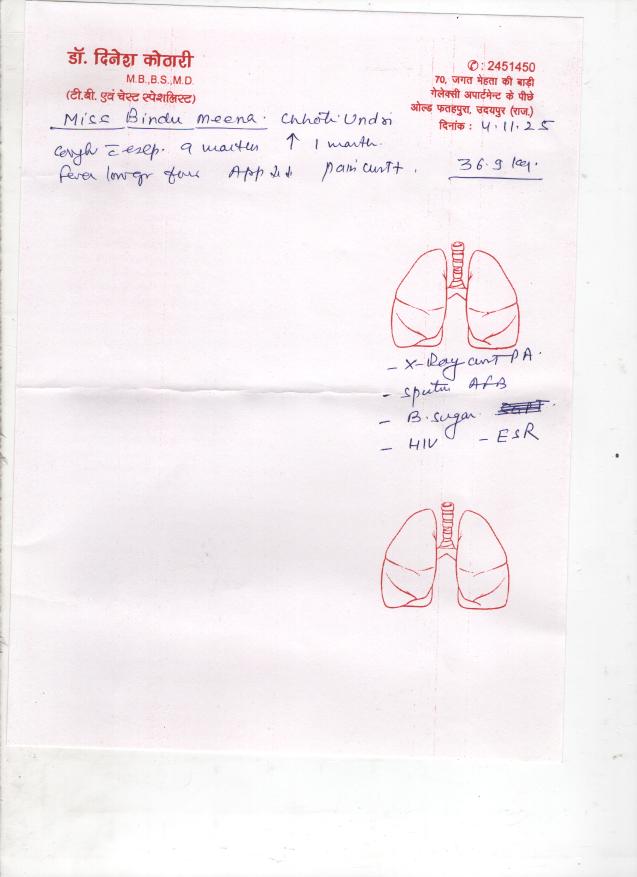 डॉ. दिनेश कोठारी
M.B.,B.S.,M.D.
(टी.बी. एवं चेस्ट स्पेशलिस्ट)
✆ : 2451450
70, जगत मेहता की बाड़ी
गेलेक्सी अपार्टमेन्ट के पीछे
ओल्ड फतहपुरा, उदयपुर (राज.)
दिनांक : 4.11.25
Miss Bindu Meena. Chhoti Undri
Cough c̄ 9 ↑ 1 month.
Fever low gr App ↓↓ Pain +. 36.9 kg.
- X-Ray PA.
- Sputum AFB
- B. Sugar.
- HIV - ESR